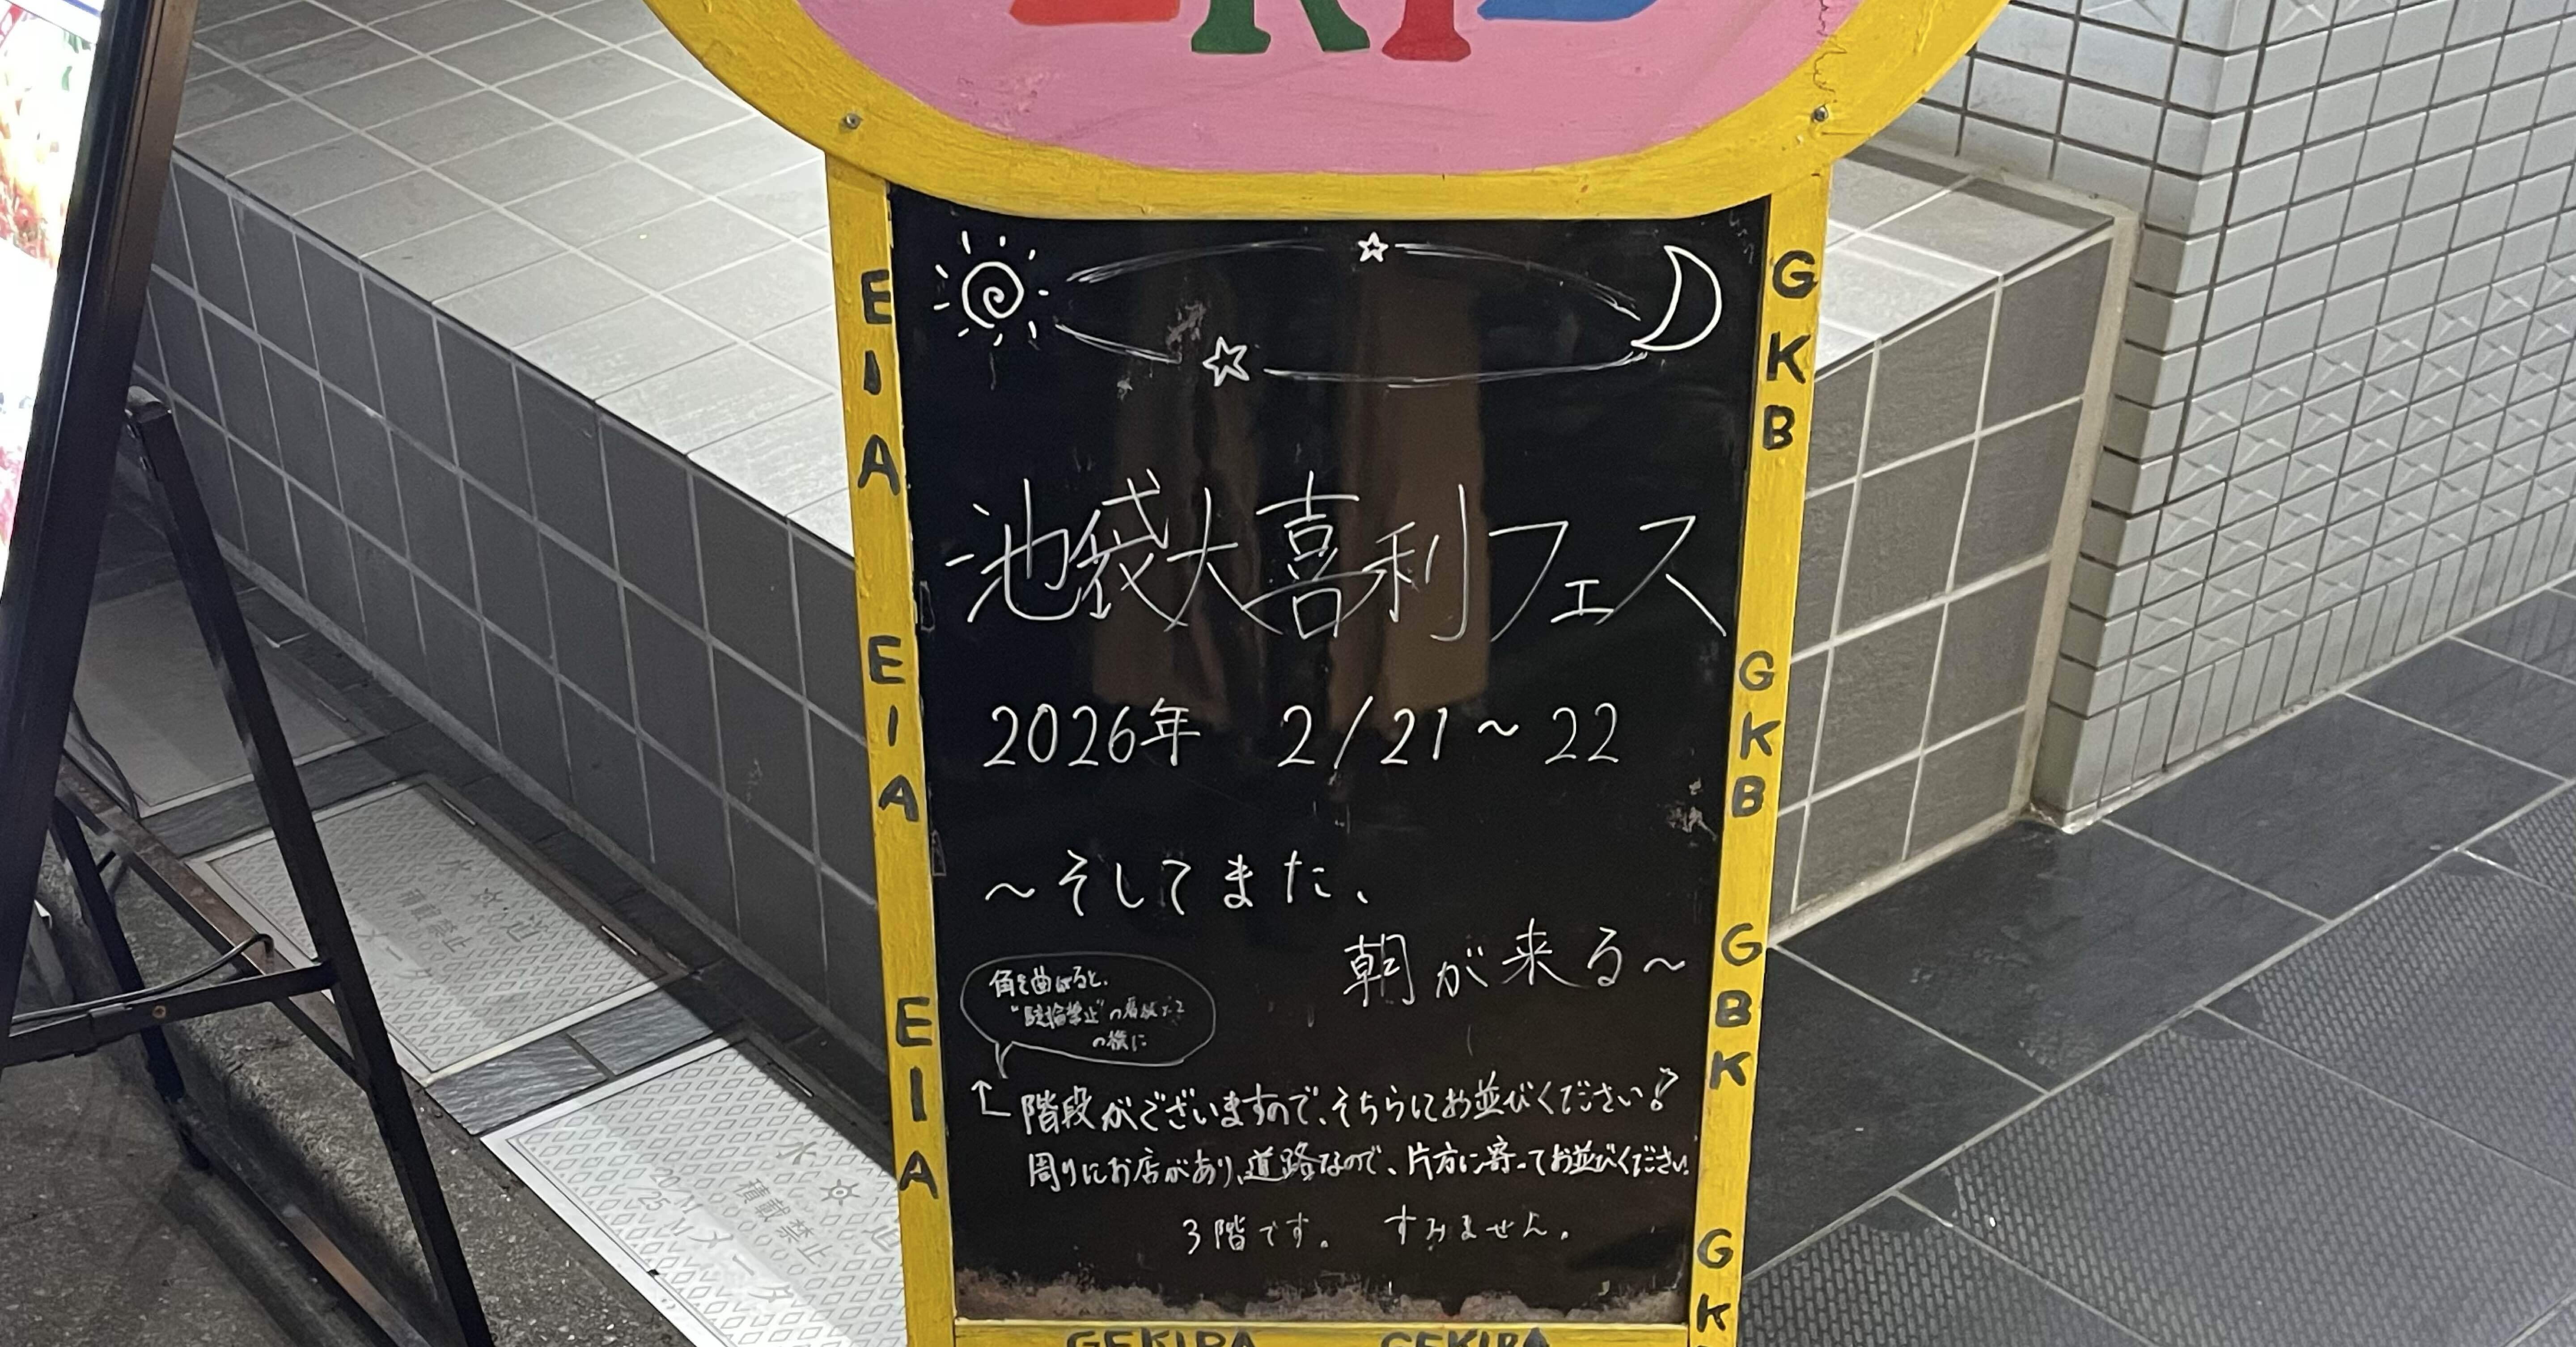 池袋大喜利フェス
2026年 2/21～22
～そしてまた、
朝が来る～
角を曲がると、
"駐輪禁止"の看板
の横に
階段がございますので、そちらにお並びください!
周りにお店があり、道路なので、片方に寄ってお並びください。
3階です。 すみません。
EIA
EIA
EIA
GKB
GKB
GBK
GK
GEKIBA GEKIBA
水 道
積載禁止
メータ
水 道
積載禁止
20 M
25 M メータ